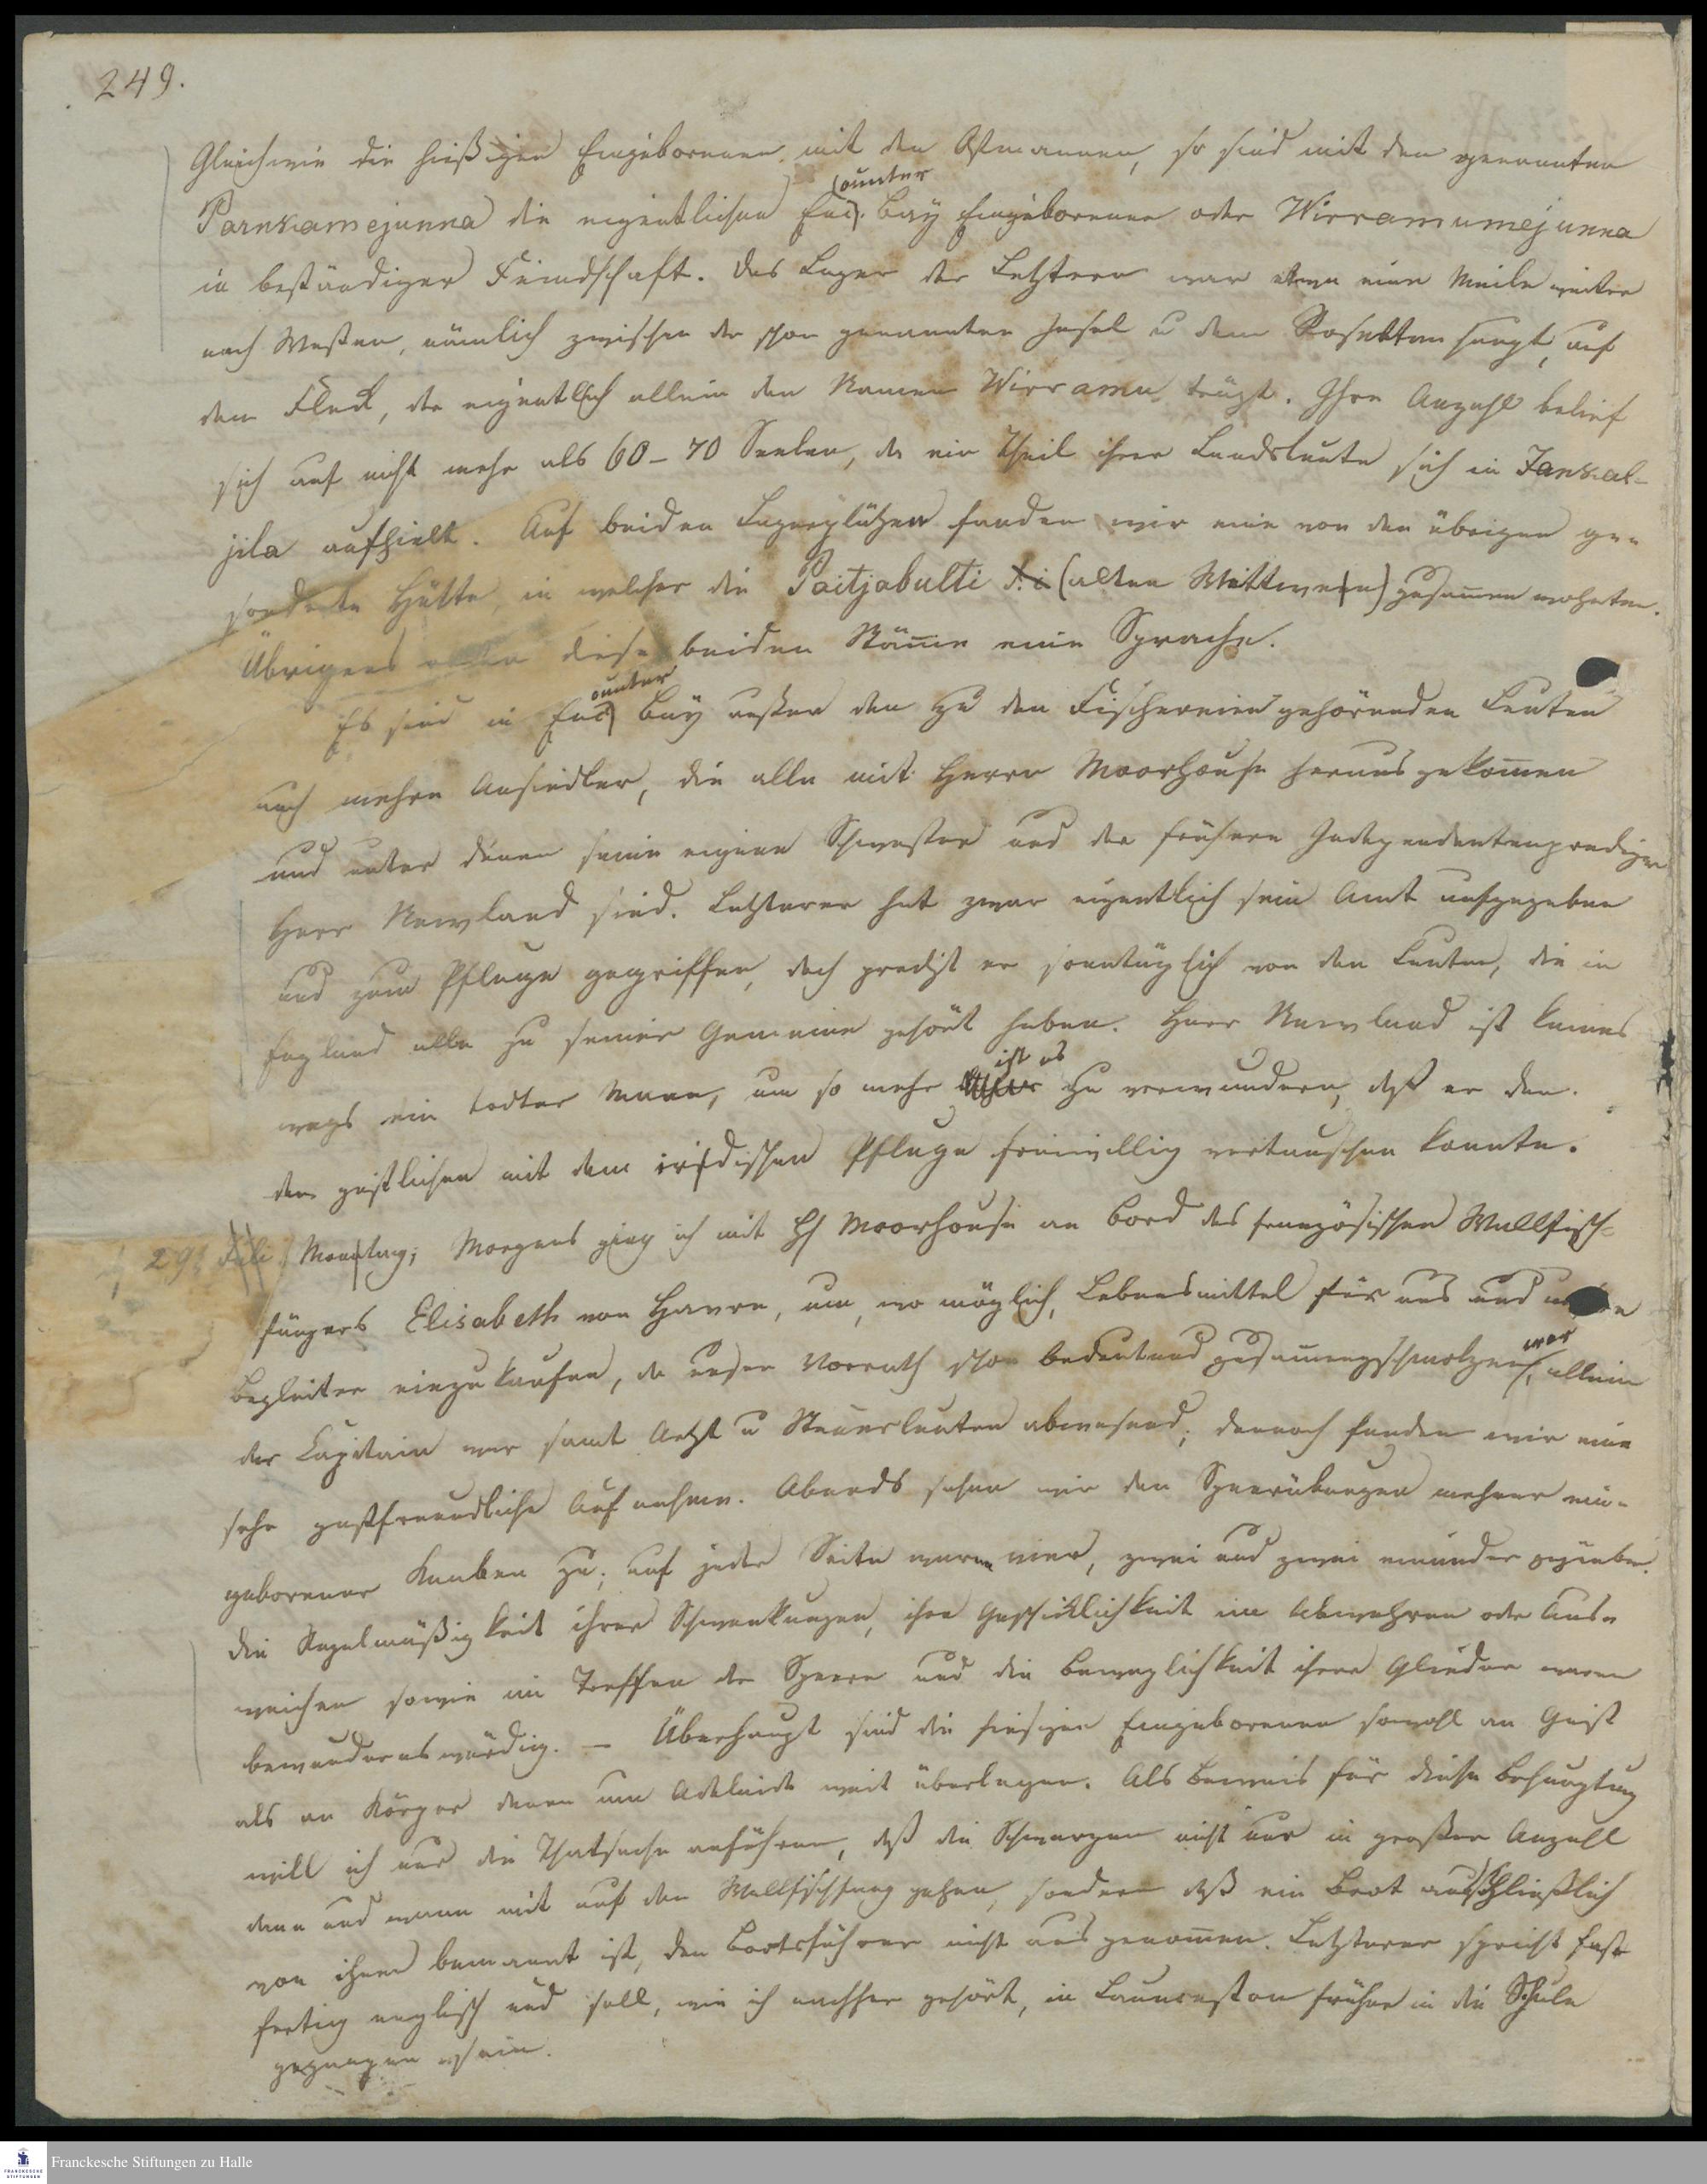 249.
Gleichwie die hießigen Eingeborenen mit den Ostmannen, so sind mit den genannten
ounter
Parnkamejunna die eigentlichen Enc. Bay Eingeborenen oder Wirramumejunna
in beständiger Feindschaft. Das Lager der Letztern war etwa eine Meile weiter
nach Westen, nämlich zwischen der schon genannten Insel u dem Rosettenhaupt, auf
dem Fleck, der eigentlich allein den Namen Wirramu trägt. Ihre Anzahl belief
sich auf nicht mehr als 60-70 Seelen, da ein Theil ihrer Landsleute sich in Jankal-
jila aufhielt. Auf beiden Lagerplätzen fanden wir eine von den übrigen ge-
sonderte Hütte, in welcher die Paitjabulti d. i (alten Wittwen) zusam̄en wohnten.
Übrigens diese beiden Stäm̄e eine Sprache.
ounter
Es sind in Enc Bay außer den zu den Fischereien gehörenden Leuten
noch mehre Ansiedler, die alle mit Herrn Moorhouse herausgekom̄en
und unter denen seine eigene Schwester und der frühere Independentenprediger
Herr Newland sind. Letzterer hat zwar eigentlich sein Amt aufgegeben
und zum Pfluge gegriffen, doch predigt er sonntäglich von den Leuten, die in
England alle zu seiner Gemeine gehört haben. Herr Newland ist keines
ist es
wegs ein todter Mann, um so mehr zu verwundern, daß er den
den geistlichen mit dem irdischen Pfluge freiwillig vertauschen konnte.
29 Juli Montag; Morgens ging ich mit H Moorhouse an Bord des französischen Wallfisch-
fängers Elisabeth von Havre, um, wo möglich, Lebensmittel für uns und
war
Begleiter einzukaufen, da unser Vorrath schon bedeutend zusam̄engeschmolzen, allein
der Capitain war samt Arzt u Steuerleuten abwesend; dennoch fanden wir eine
sehr gastfreundliche Aufnahme. Abends sahen wir den Speerübungen mehrer ein-
geborener Knaben zu; auf jeder Seite waren vier, zwei und zwei einander gegenüber.
Die Regelmäßigkeit ihrer Schwenkungen, ihre Geschicklichkeit im Abwehren oder Aus-
weichen sowie im Treffen der Speere und die Beweglichkeit ihrer Glieder waren
bewundernswürdig. — Überhaupt sind die hiesigen Eingeborenen sowohl an Geist
als an Körper denen um Adelaide weit überlegen. Als Beweis für diese Behauptung
will ich nur die Thatsache anführen, daß die Schwarzen nicht nur in großer Anzahl
dann und wann mit auf den Wallfischfang gehen, sondern daß ein Boot ausschließlich
von ihnen bemannt ist, den Bootsführer nicht ausgenom̄en. Letzterer spricht fast
fertig englisch und soll, wie ich nachher gehört, in Launceston früher in die Schule
gegangen sein.
Franckesche Stiftungen zu Halle
FRANCKESCHE STIFTUNGEN